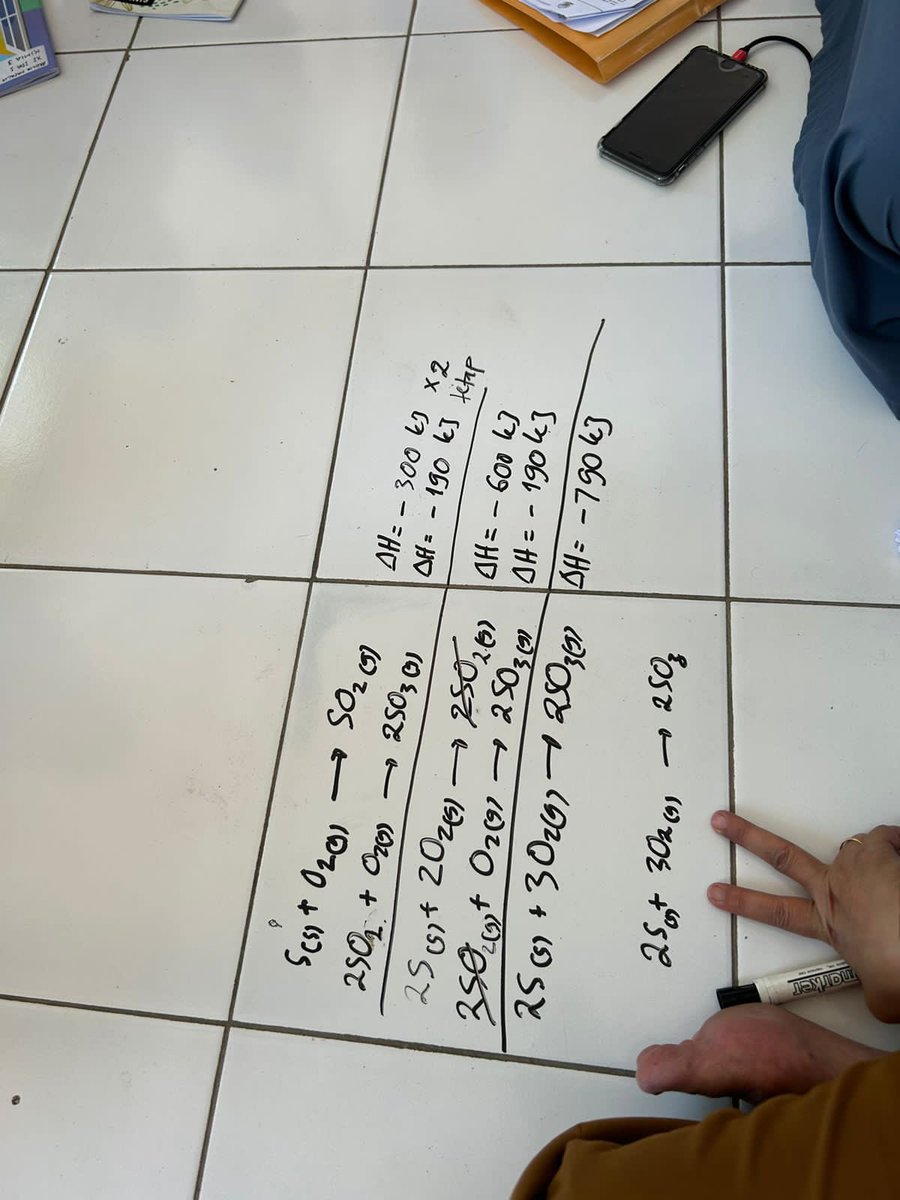 S(s) + O2(g) → SO2(g) ΔH = -300 kJ ×2
2SO2 + O2(g) → 2SO3(g) ΔH = -190 kJ tetap
2S(s) + 2O2(g) → 2SO2(g) ΔH = -600 kJ
2SO2(g) + O2(g) → 2SO3(g) ΔH = -190 kJ
2S(s) + 3O2(g) → 2SO3(g) ΔH = -790 kJ
2S(s) + 3O2(g) → 2SO3
marker
KIMIA 3